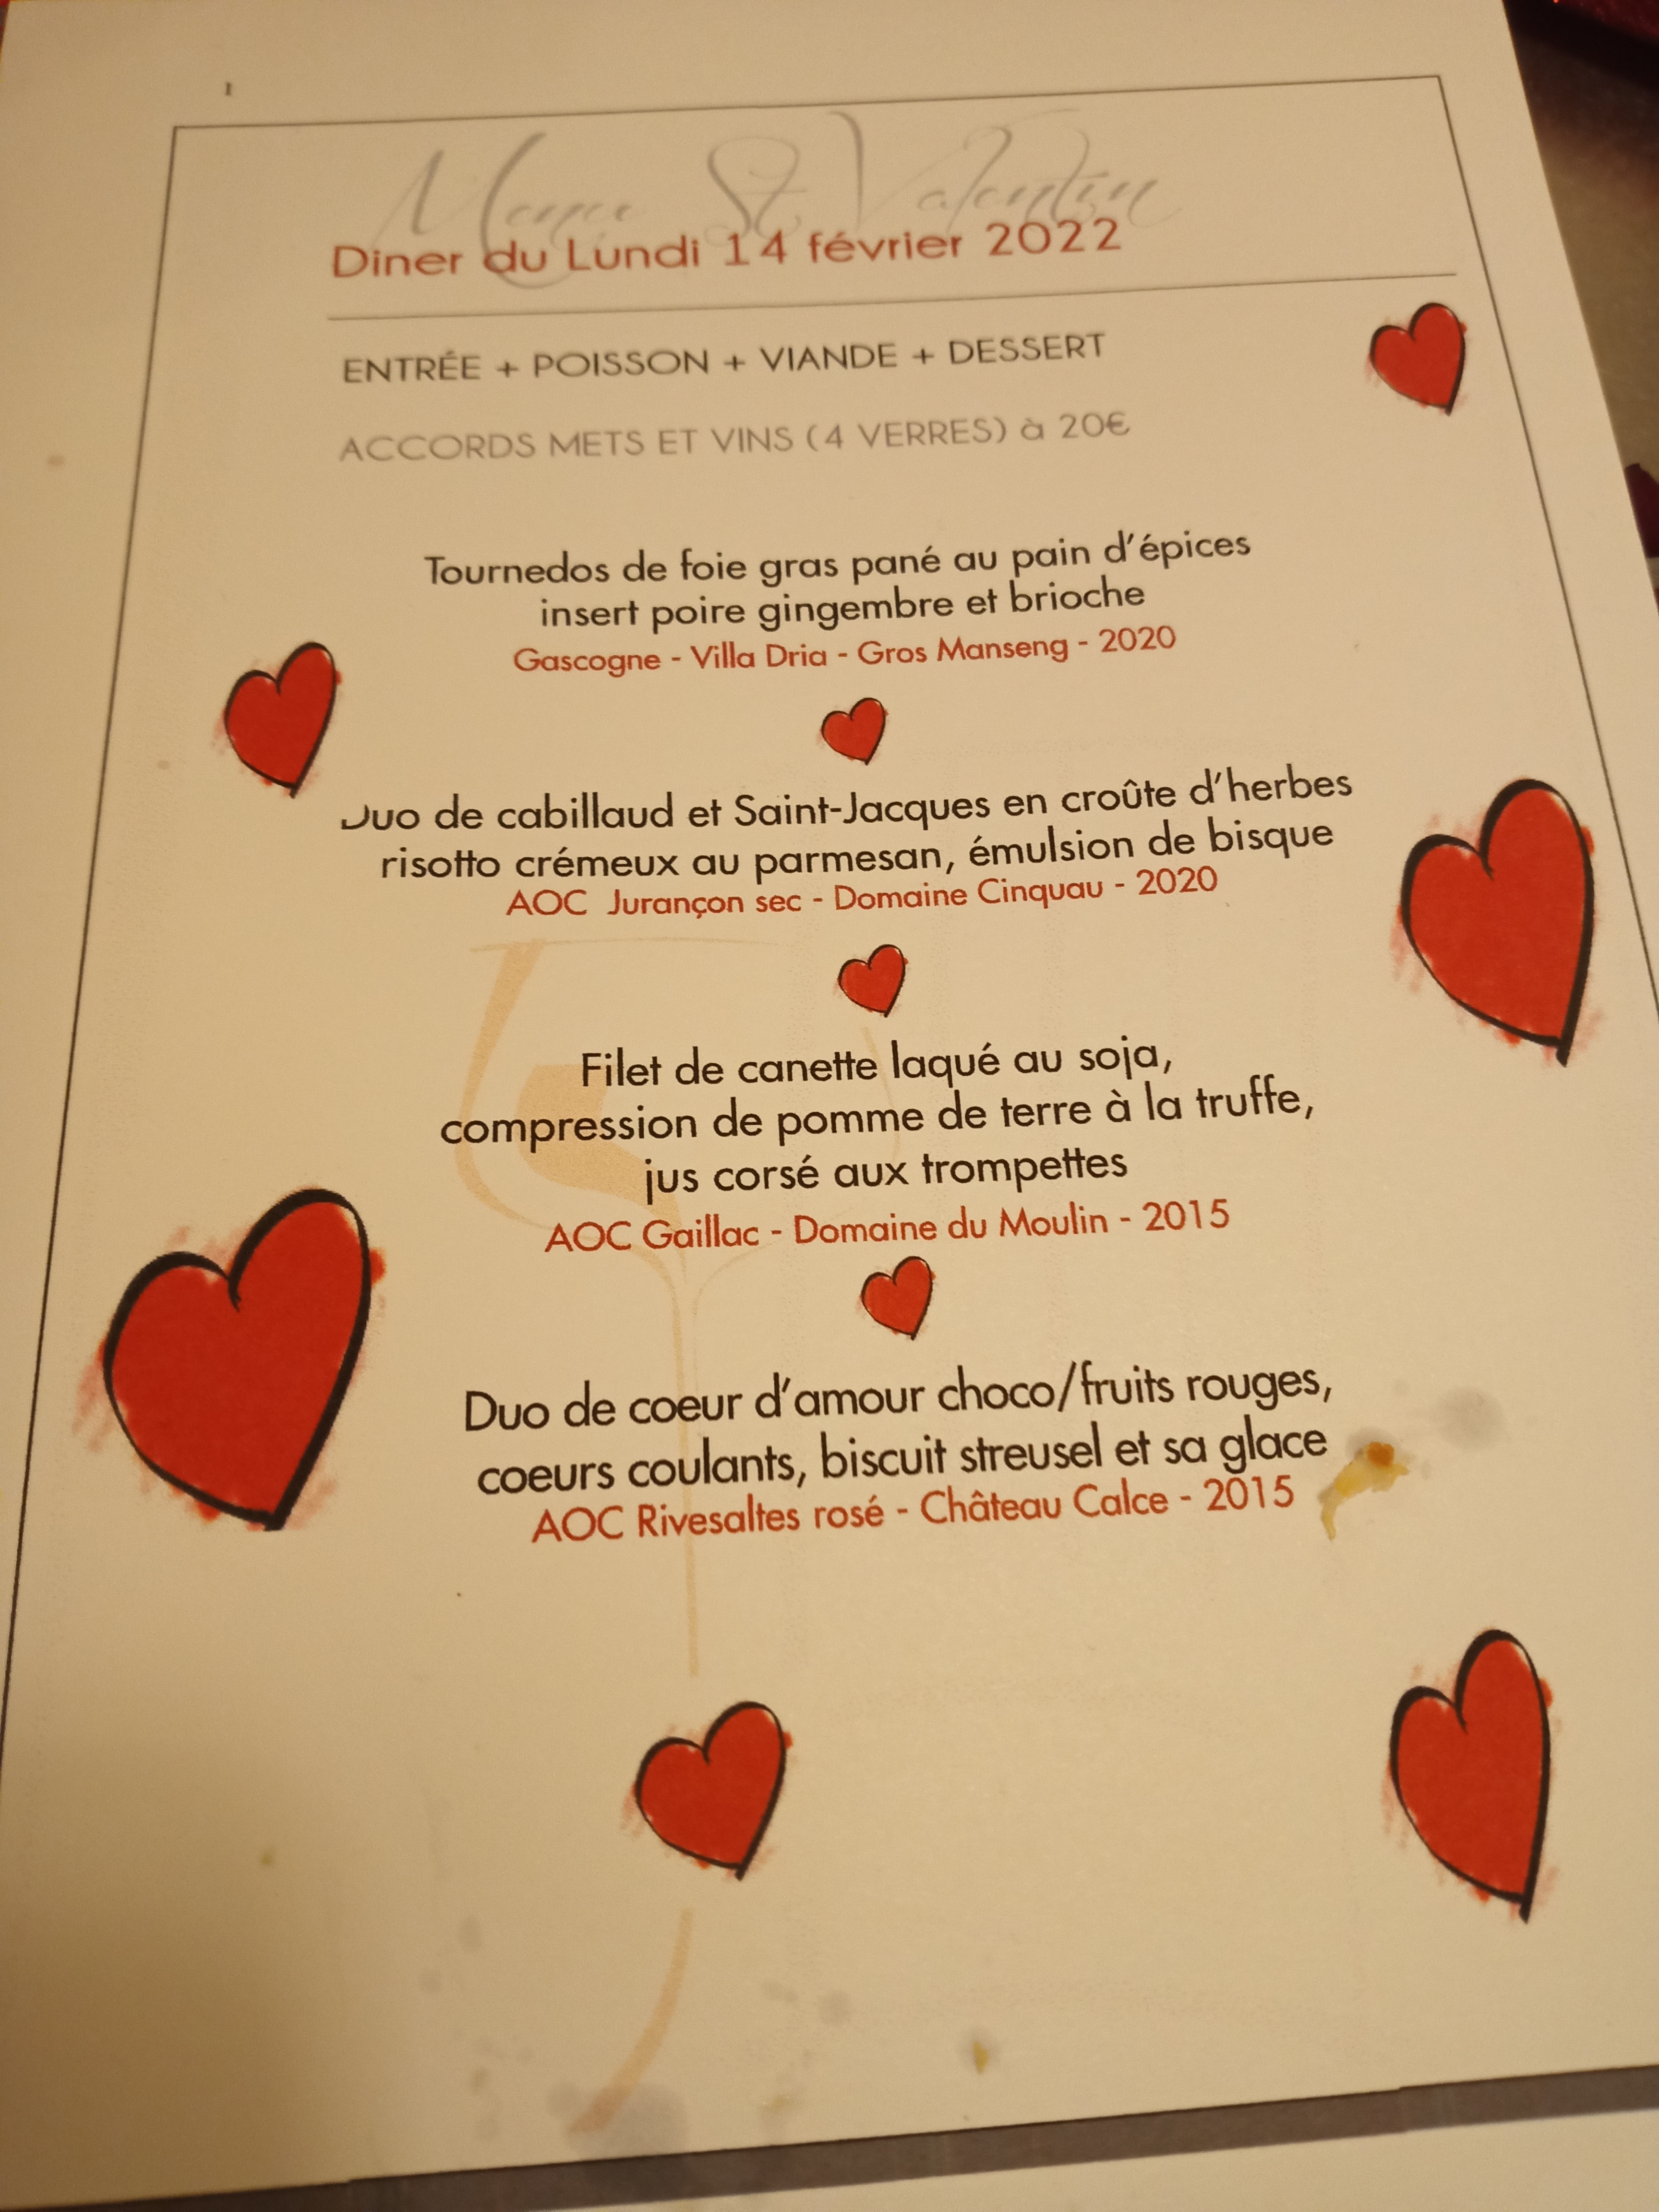 Menu St Valentin
Diner du Lundi 14 février 2022
ENTRÉE + POISSON + VIANDE + DESSERT
ACCORDS METS ET VINS (4 VERRES) à 20€
Tournedos de foie gras pané au pain d'épices
insert poire gingembre et brioche
Gascogne - Villa Dria - Gros Manseng - 2020
Duo de cabillaud et Saint-Jacques en croûte d'herbes
risotto crémeux au parmesan, émulsion de bisque
AOC Jurançon sec - Domaine Cinquau - 2020
Filet de canette laqué au soja,
compression de pomme de terre à la truffe,
jus corsé aux trompettes
AOC Gaillac - Domaine du Moulin - 2015
Duo de coeur d'amour choco/fruits rouges,
coeurs coulants, biscuit streusel et sa glace
AOC Rivesaltes rosé - Château Calce - 2015